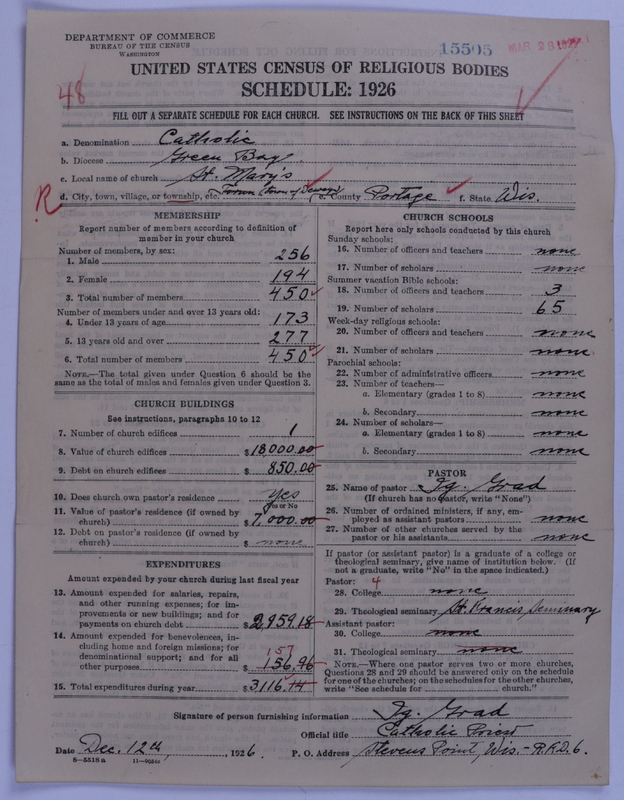 DEPARTMENT OF COMMERCE
BUREAU OF THE CENSUS
WASHINGTON
15505
MAR 28 192
UNITED STATES CENSUS OF RELIGIOUS BODIES
SCHEDULE: 1926
48
FILL OUT A SEPARATE SCHEDULE FOR EACH CHURCH. SEE INSTRUCTIONS ON THE BACK OF THIS SHEET
a. Denomination Catholic
b. Diocese Green Bay
c. Local name of church St. Mary's
R
d. City, town, village, or township, etc. Torun (town of Dewey) e. County Portage f. State Wis.
MEMBERSHIP
Report number of members according to definition of
member in your church
Number of members, by sex:
1. Male 256
2. Female 194
3. Total number of members 450
Number of members under and over 13 years old:
4. Under 13 years of age 173
5. 13 years old and over 277
6. Total number of members 450
NOTE.—The total given under Question 6 should be the
same as the total of males and females given under Question 3.
CHURCH BUILDINGS
See instructions, paragraphs 10 to 12
7. Number of church edifices 1
8. Value of church edifices $18000.00
9. Debt on church edifices $850.00
10. Does church own pastor's residence Yes
Yes or No
11. Value of pastor's residence (if owned by
church) $7,000.00
12. Debt on pastor's residence (if owned by
church) $ none
EXPENDITURES
Amount expended by your church during last fiscal year
13. Amount expended for salaries, repairs,
and other running expenses; for im-
provements or new buildings; and for
payments on church debt $2,959.18
14. Amount expended for benevolences, in-
cluding home and foreign missions; for
denominational support; and for all
other purposes $156.96
157
15. Total expenditures during year $3116.14
CHURCH SCHOOLS
Report here only schools conducted by this church
Sunday schools:
16. Number of officers and teachers none
17. Number of scholars none
Summer vacation Bible schools:
18. Number of officers and teachers 3
19. Number of scholars 65
Week-day religious schools:
20. Number of officers and teachers none
21. Number of scholars none
Parochial schools:
22. Number of administrative officers none
23. Number of teachers—
a. Elementary (grades 1 to 8) none
b. Secondary none
24. Number of scholars—
a. Elementary (grades 1 to 8) none
b. Secondary none
PASTOR
25. Name of pastor Ig. Grad
(If church has no pastor, write "None")
26. Number of ordained ministers, if any, em-
ployed as assistant pastors none
27. Number of other churches served by the
pastor or his assistants none
If pastor (or assistant pastor) is a graduate of a college or
theological seminary, give name of institution below. (If
not a graduate, write "No" in the space indicated.)
Pastor: 4
28. College none
29. Theological seminary St. Francis Seminary
Assistant pastor:
30. College none
31. Theological seminary none
NOTE.—Where one pastor serves two or more churches,
Questions 28 and 29 should be answered only on the schedule
for one of the churches; on the schedules for the other churches,
write "See schedule for church."
Signature of person furnishing information Ig. Grad
Official title Catholic Priest
Date Dec. 12th, 1926. P. O. Address Stevens Point, Wis. - R.R.D. 6.
8—5518 a